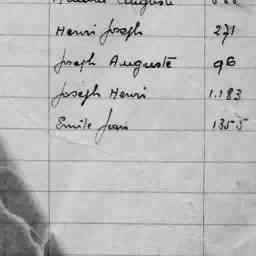 Auguste
Henri Joseph 271
Joseph Auguste 96
Joseph Henri 1.183
Emile Jean 1355